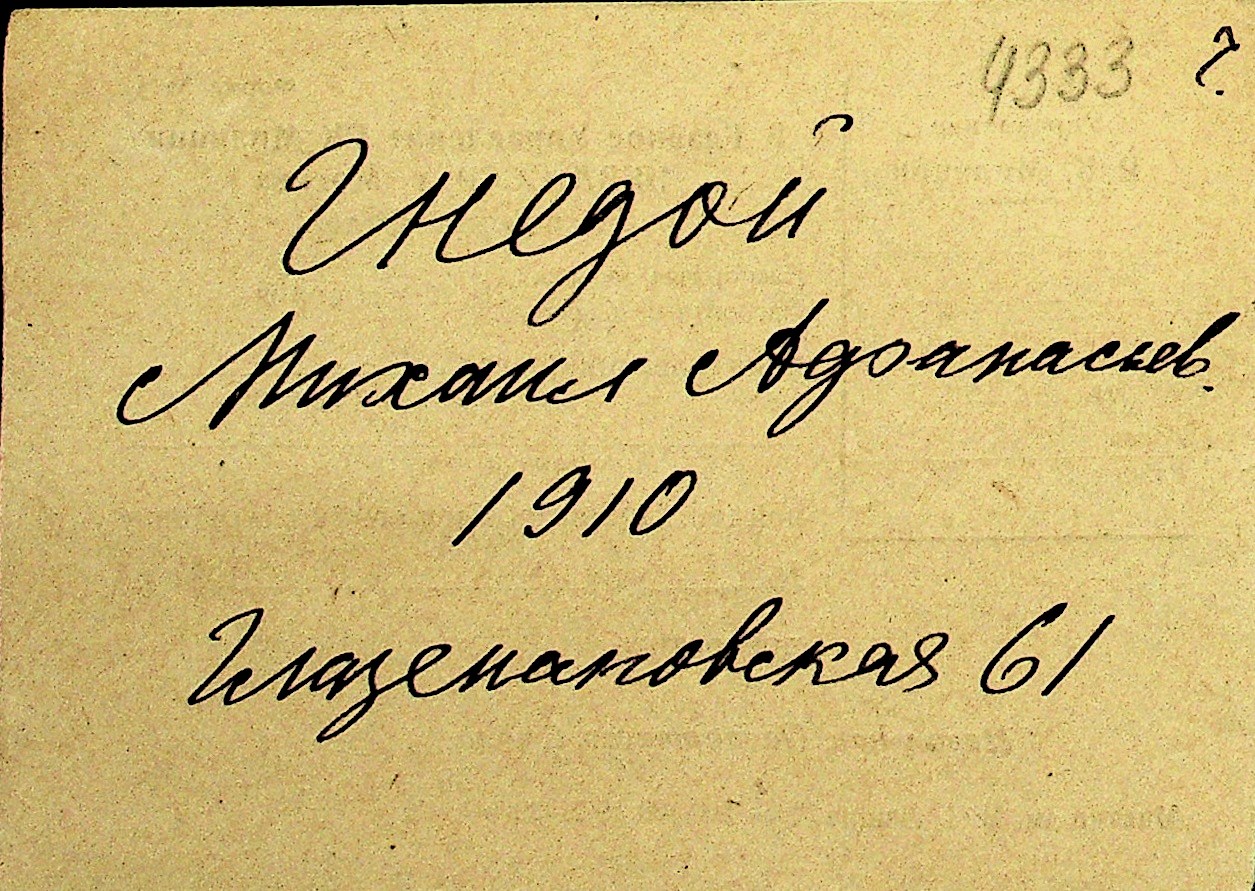 4333 ?
Гнедой
Михаил Афанасьев.
1910
Глазенаповская 61